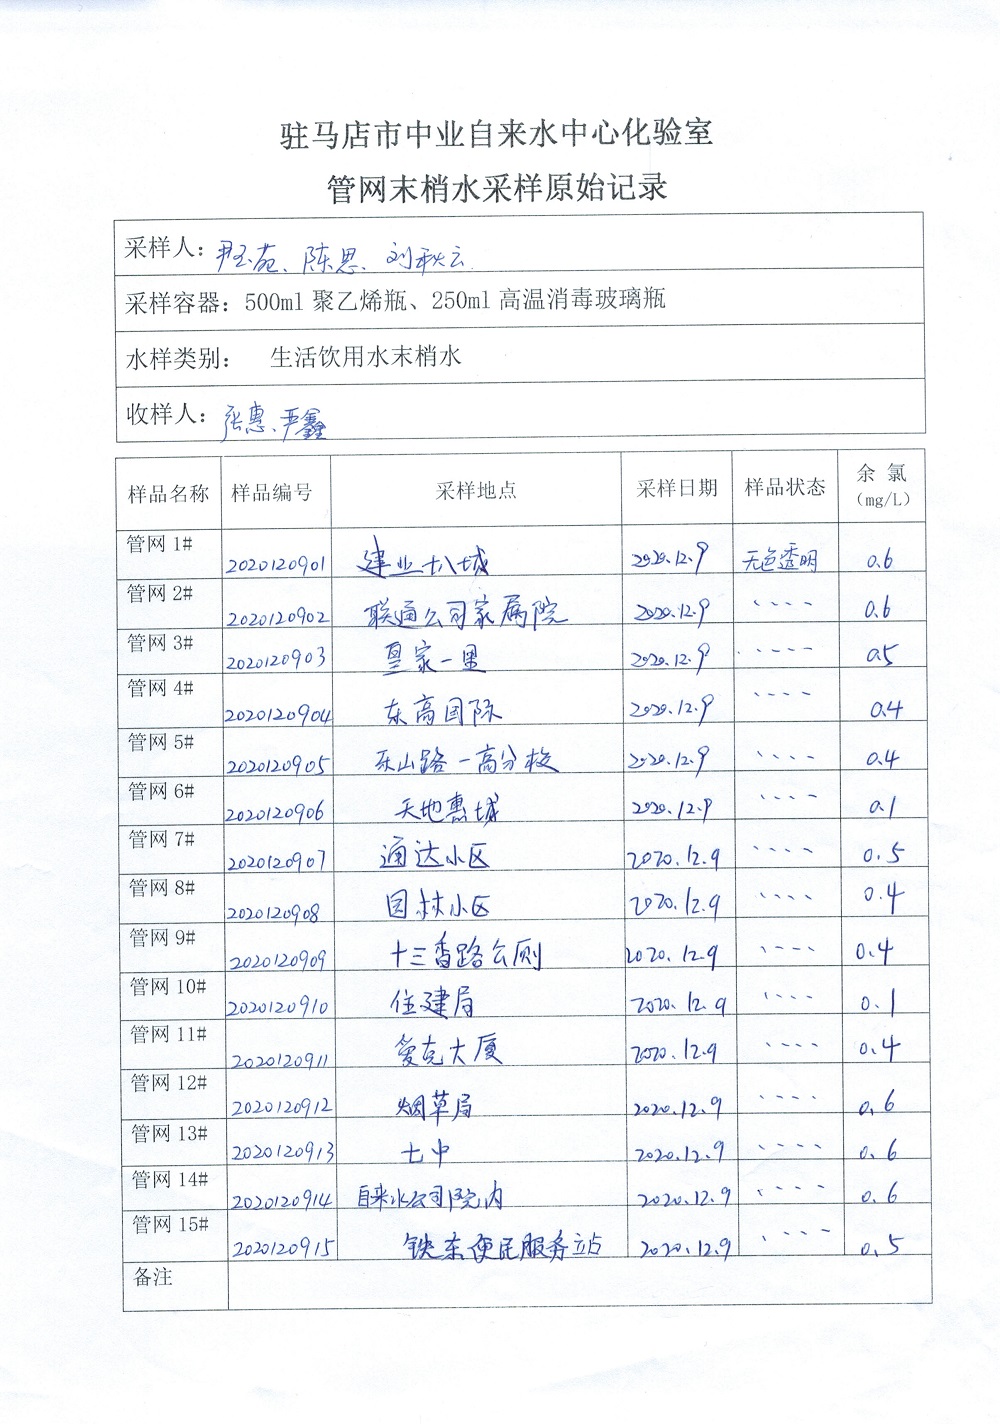 驻马店市中业自来水中心化验室
管网末梢水采样原始记录
采样人：尹玉苑、陈思、刘秋云
采样容器：500ml 聚乙烯瓶、250ml 高温消毒玻璃瓶
水样类别： 生活饮用水末梢水
收样人：张惠、严鑫
样品名称 样品编号 采样地点 采样日期 样品状态 余 氯（mg/L）
管网 1# 2020120901 建业十八城 2020.12.9 无色透明 0.6
管网 2# 2020120902 联通公司家属院 2020.12.9 、、、、 0.6
管网 3# 2020120903 皇家一里 2020.12.9 、、、、 0.5
管网 4# 2020120904 东高国际 2020.12.9 、、、、 0.4
管网 5# 2020120905 乐山路一高分校 2020.12.9 、、、、 0.4
管网 6# 2020120906 天地惠城 2020.12.9 、、、、 0.1
管网 7# 2020120907 通达小区 2020.12.9 、、、、 0.5
管网 8# 2020120908 园林小区 2020.12.9 、、、、 0.4
管网 9# 2020120909 十三香路公厕 2020.12.9 、、、、 0.4
管网 10# 2020120910 住建局 2020.12.9 、、、、 0.1
管网 11# 2020120911 爱克大厦 2020.12.9 、、、、 0.4
管网 12# 2020120912 烟草局 2020.12.9 、、、、 0.6
管网 13# 2020120913 七中 2020.12.9 、、、、 0.6
管网 14# 2020120914 自来水公司院内 2020.12.9 、、、、 0.6
管网 15# 2020120915 铁东便民服务站 2020.12.9 、、、、 0.5
备注